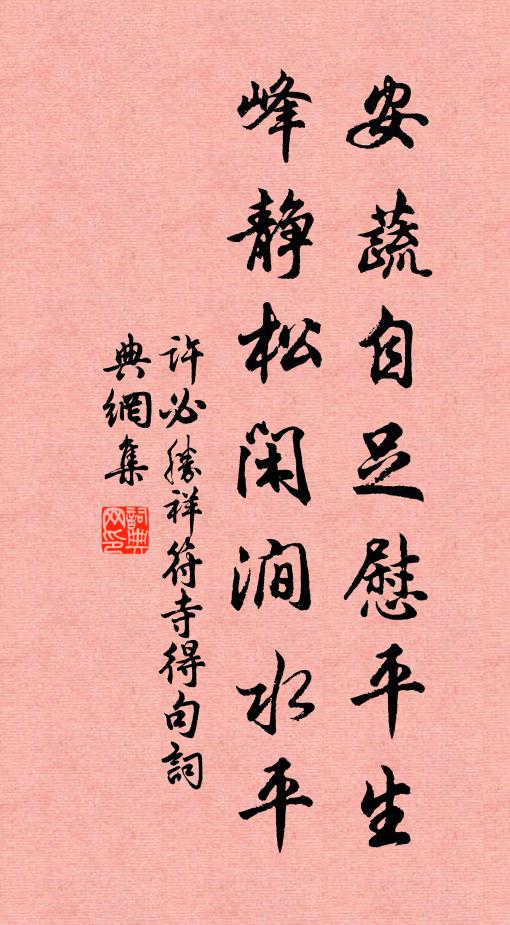 安蔬自足慰平生
峰静松闲澗水平
许必勝祥符寺得句詞
典網集
詞典
网印